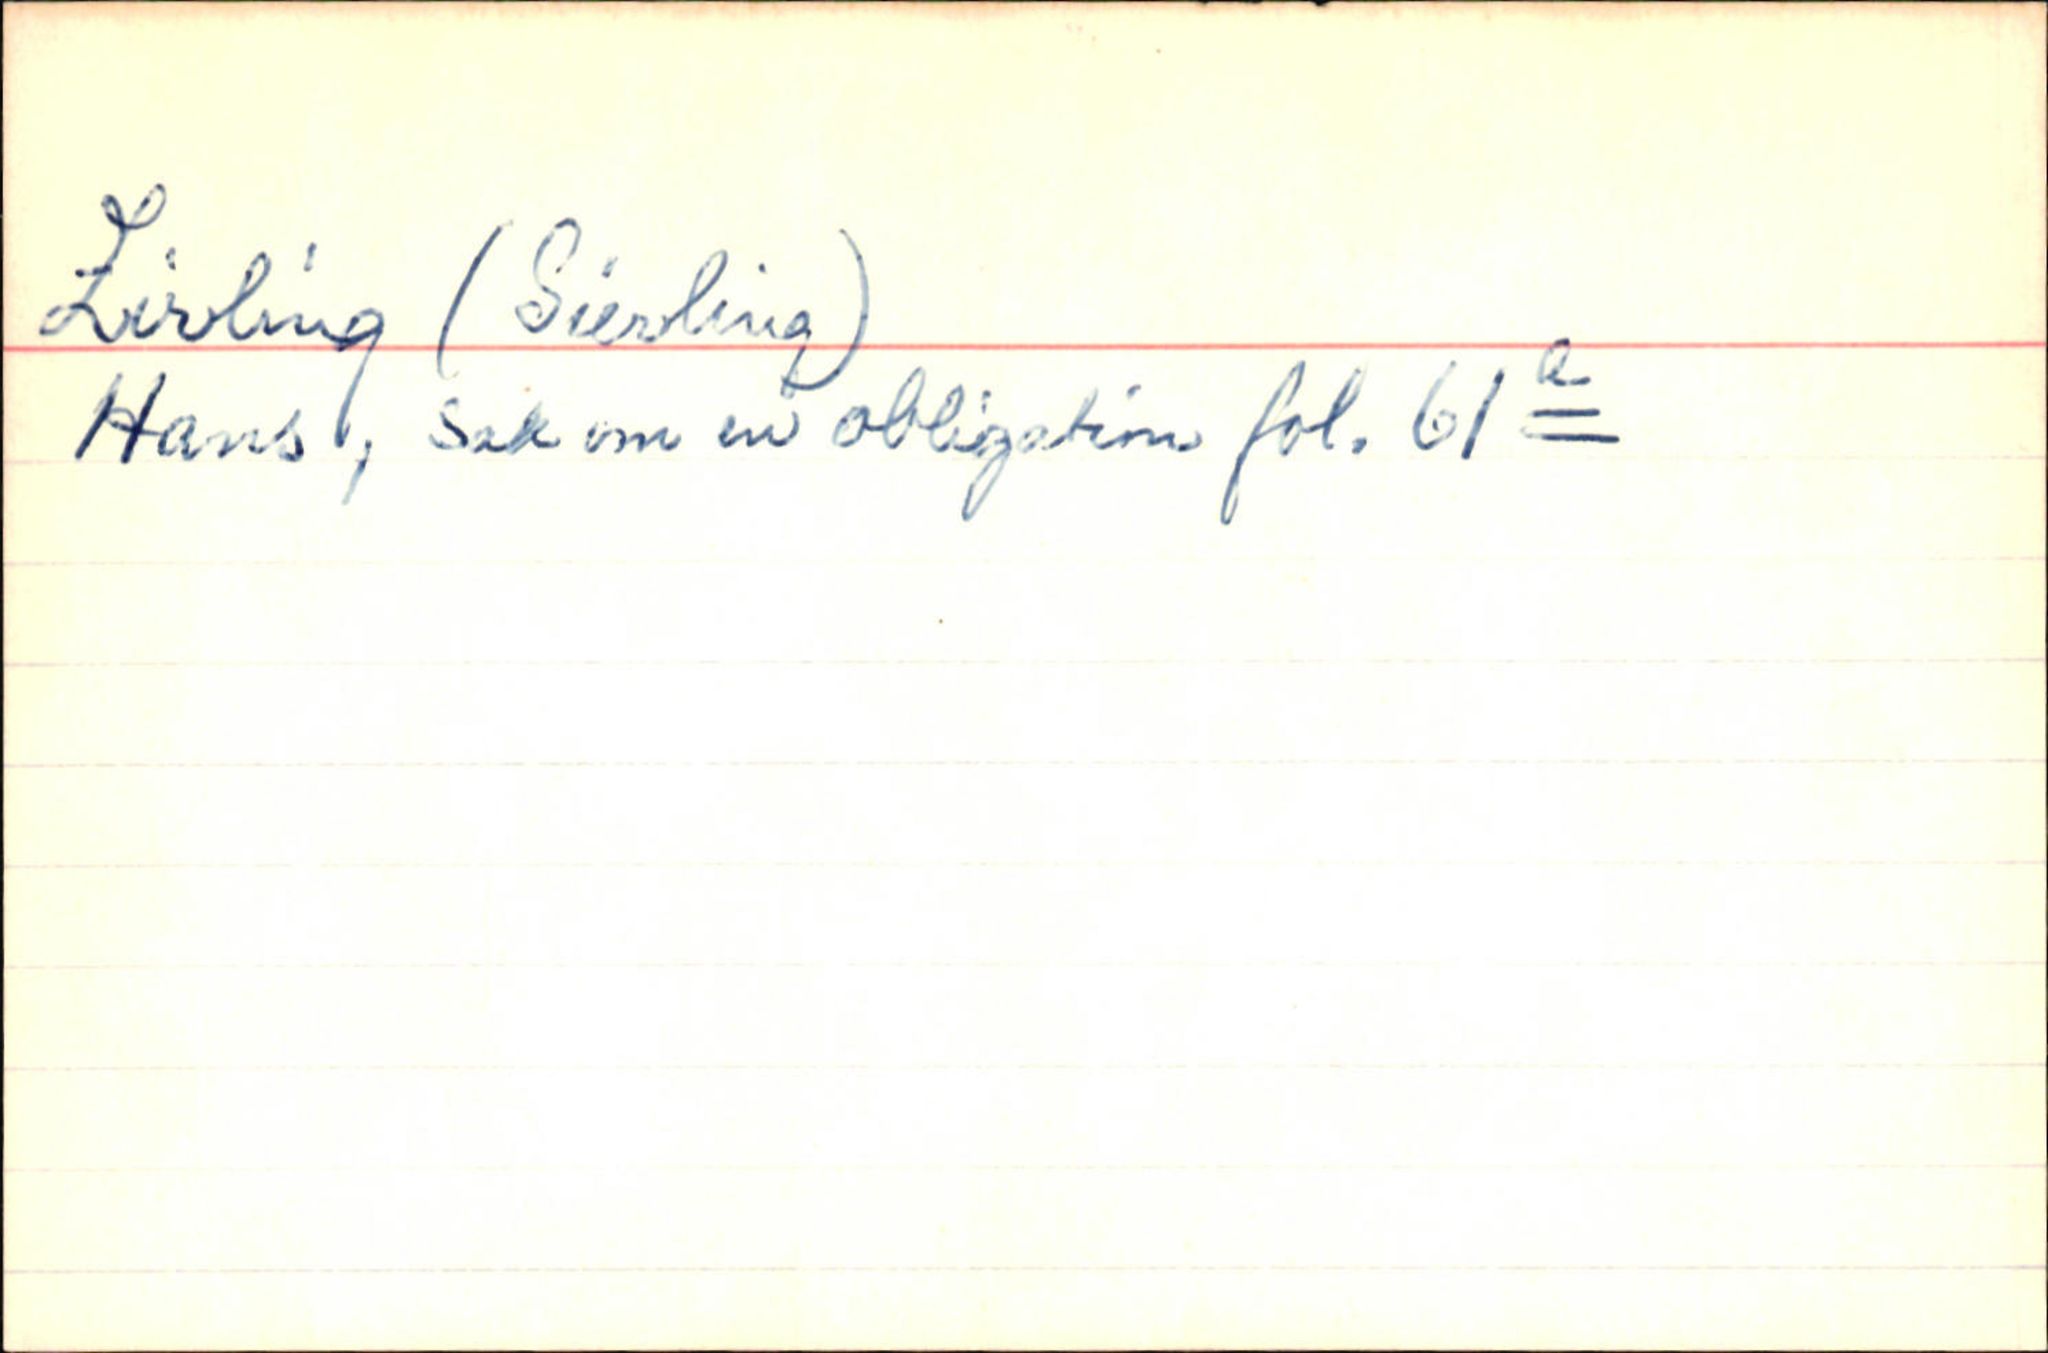 Zirling (Sierling)
Hans, sak om en obligation fol. 61 a